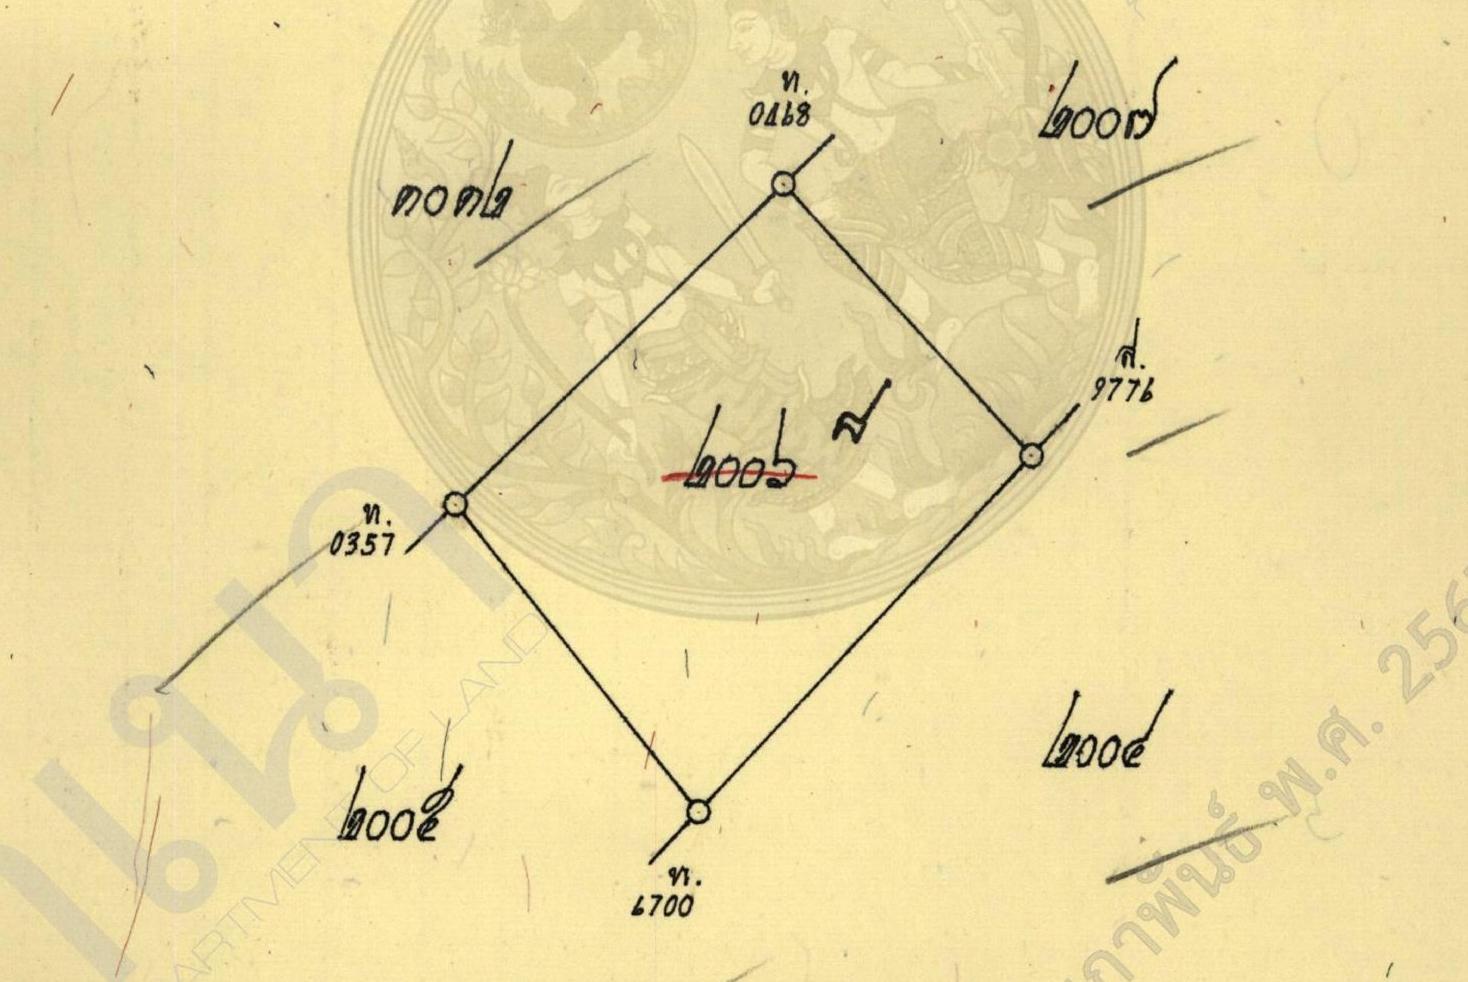 ท.
0468
๒๐๐๗
๓๐๓๒
ส.
9776
๒๐๐๖
ท.
0357
๒๐๐๔
๒๐๐๕
ท.
6700
DEPARTMENT OF LAND
กุมภาพันธ์ พ.ศ. 256